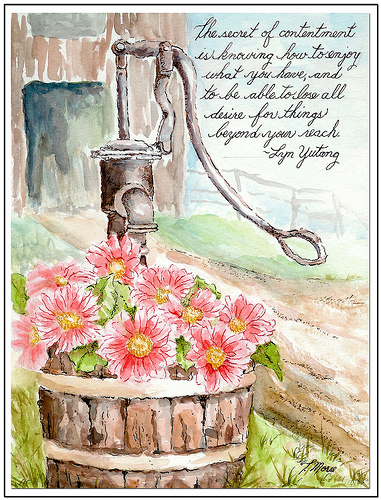 The secret of contentment
is knowing how to enjoy
what you have, and
to be able to lose all
desire for things
beyond your reach.
~Lyn Yutang